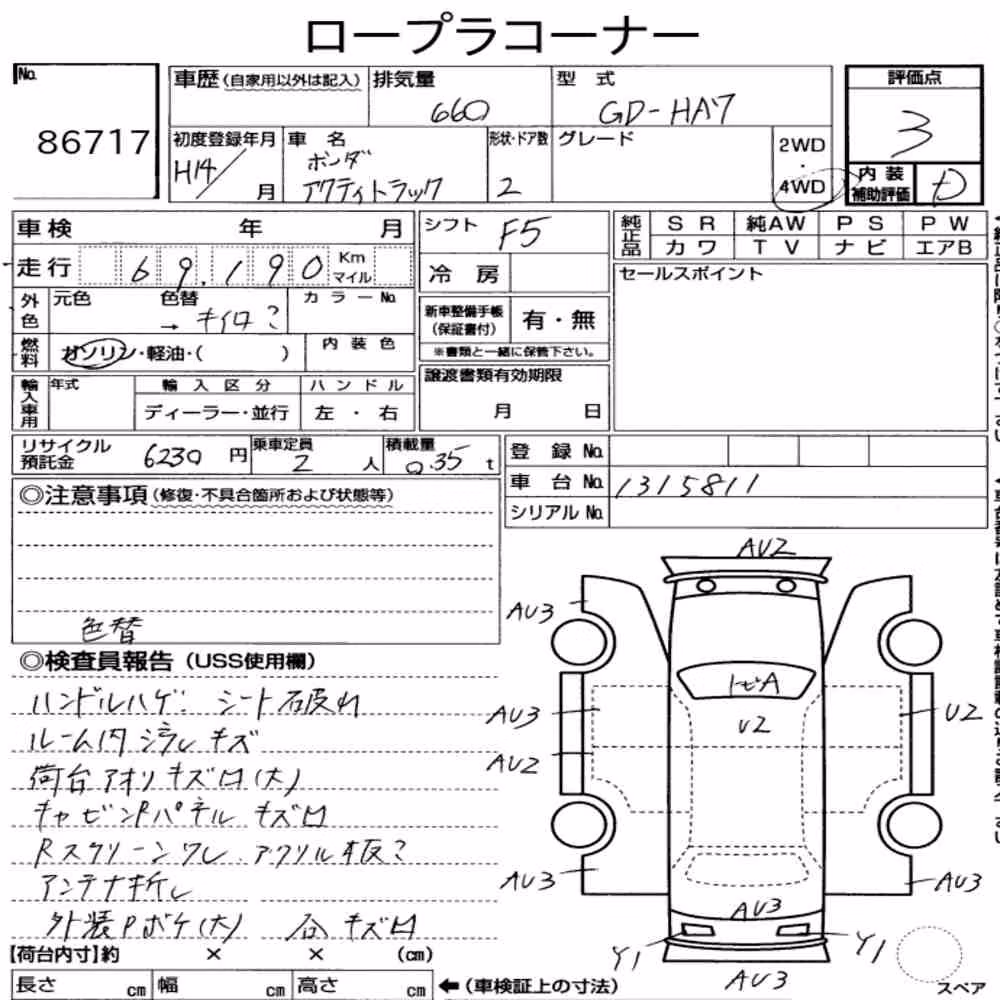 ロープラコーナー
No.
86717
車歴 (自家用以外は記入)
排気量
660
型 式
GD-HA7
評価点
3
初度登録年月
H14/ 月
車 名
ホンダ
アクティトラック
形状・ドア数
2
グレード
2WD
・
4WD
内装
補助評価
D
車検 年 月
走行 69,190 Km
マイル
外色
元色
色替
→ キイロ?
カラーNo.
燃料
ガソリン・軽油・( )
内装色
輸入車用
年式
輸入区分
ディーラー・並行
ハンドル
左・右
シフト
F5
冷房
新車整備手帳
(保証書付)
有・無
※書類と一緒に保管下さい。
譲渡書類有効期限
月 日
純正品
SR 純AW PS PW
カワ TV ナビ エアB
セールスポイント
リサイクル
預託金
6230 円
乗車定員
2 人
積載量
0.35 t
登録No.
車台No. 1315811
シリアルNo.
◎注意事項(修復・不具合箇所および状態等)
色替
◎検査員報告(USS使用欄)
ハンドルハゲ. シート破れ
ルーム内汚レキズ
荷台アオリキズ凹(大)
キャビンRパネル キズ凹
Rスクリーンワレ.アクリル板?
アンテナ折レ
外装Pボケ(大) 各キズ凹
【荷台内寸】約 × × (cm)
長さ cm 幅 cm 高さ cm ←(車検証上の寸法)
AU2
AU3
トビA
AU3
U2
U2
AU2
AU3
AU3
AU3
Y1
Y1
AU3
スペア